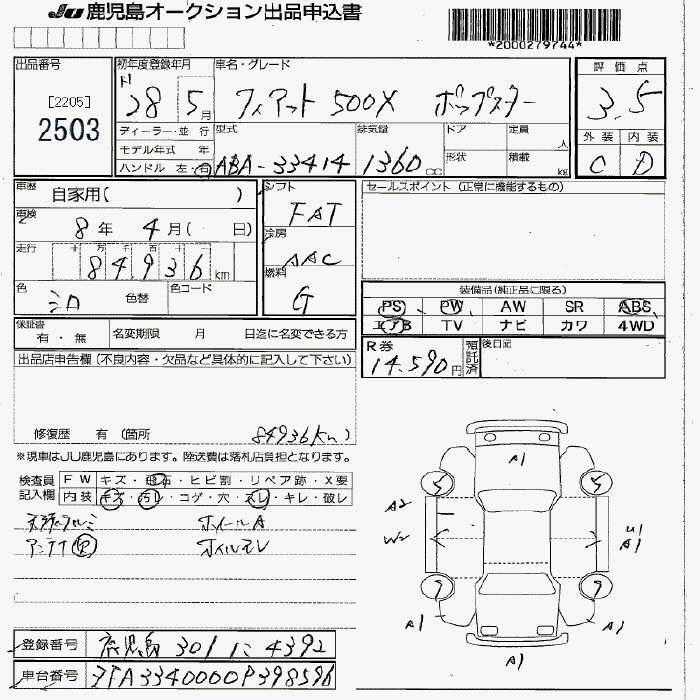 JU 鹿児島オークション出品申込書
*2000279744*
出品番号
[2205]
2503
初年度登録年月
28 5月
車名・グレード
フィアット 500X ポップスター
評価点
3.5
外装 内装
C D
ディーラー・並行
モデル年式 年
ハンドル 左・右
型式
ABA-33414
排気量
1360cc
ドア
形状
定員 人
積載 kg
車歴
自家用( )
車検
8年 4月( 日)
走行
十 万 千 百 十 一
84936km
色 色替
色コード
シフト
FAT
冷房
AAC
燃料
G
セールスポイント (正常に機能するもの)
装備品(純正品に限る)
PS PW AW SR ABS
エアB TV ナビ カワ 4WD
保証書
有・無
名変期限 月 日迄に名変できる方
R券
14.590円
預託済
後日記
出品店申告欄(不良内容・欠品など具体的に記入して下さい)
修復歴 有 (箇所 84936km)
※現車はJU鹿児島にあります。陸送費は落札店負担となります。
検査員記入欄
FW キズ・飛石・ヒビ割・リペア跡・X要
内装 キズ・汚レ・コゲ・穴・スレ・キレ・破レ
ホイールA
アンテナ欠
A1
5
5
A2
W2
U1
A1
7
7
A1
A1
A1
登録番号
鹿児島 301 に 4392
車台番号
ZFA3340000P398596